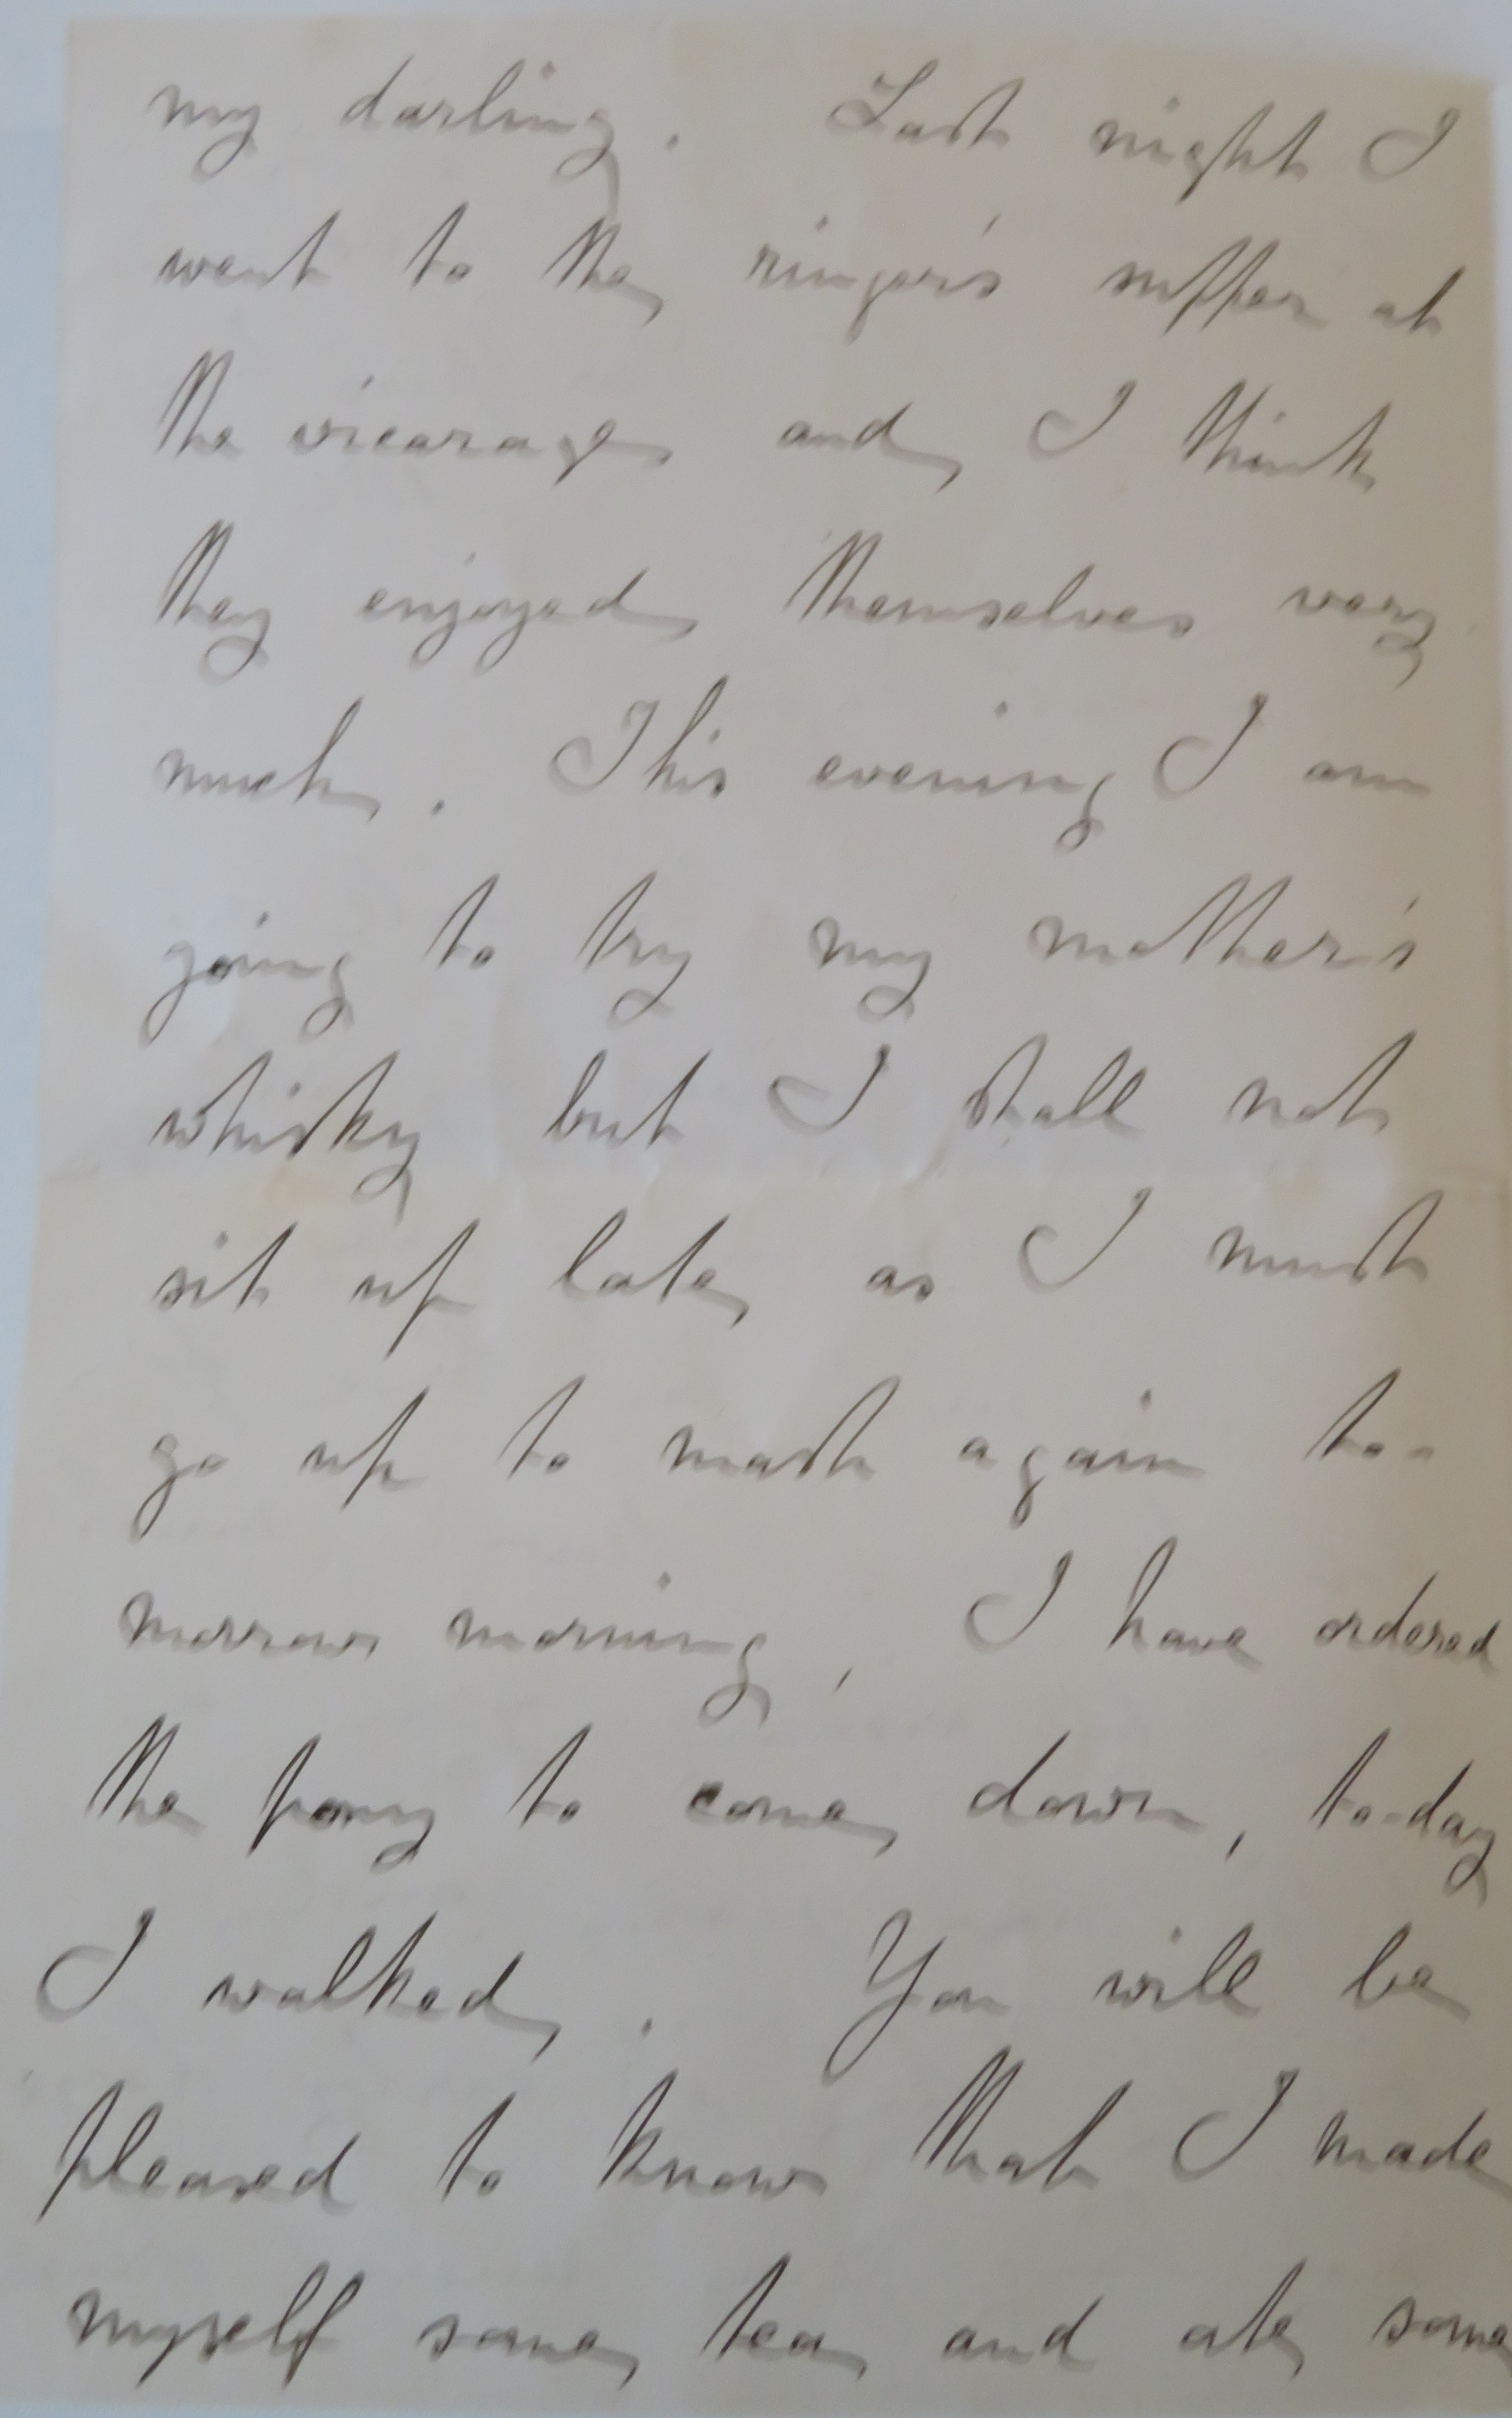 my darling. Last night I
went to the ringer's supper at
the vicarage and I think
they enjoyed themselves very
much. This evening I am
going to try my mother's
whisky but I shall not
sit up late as I must
go up to mash again to-
morrow morning, I have ordered
the pony to come down, to-day
I walked. You will be
pleased to know that I made
myself some tea and ate some